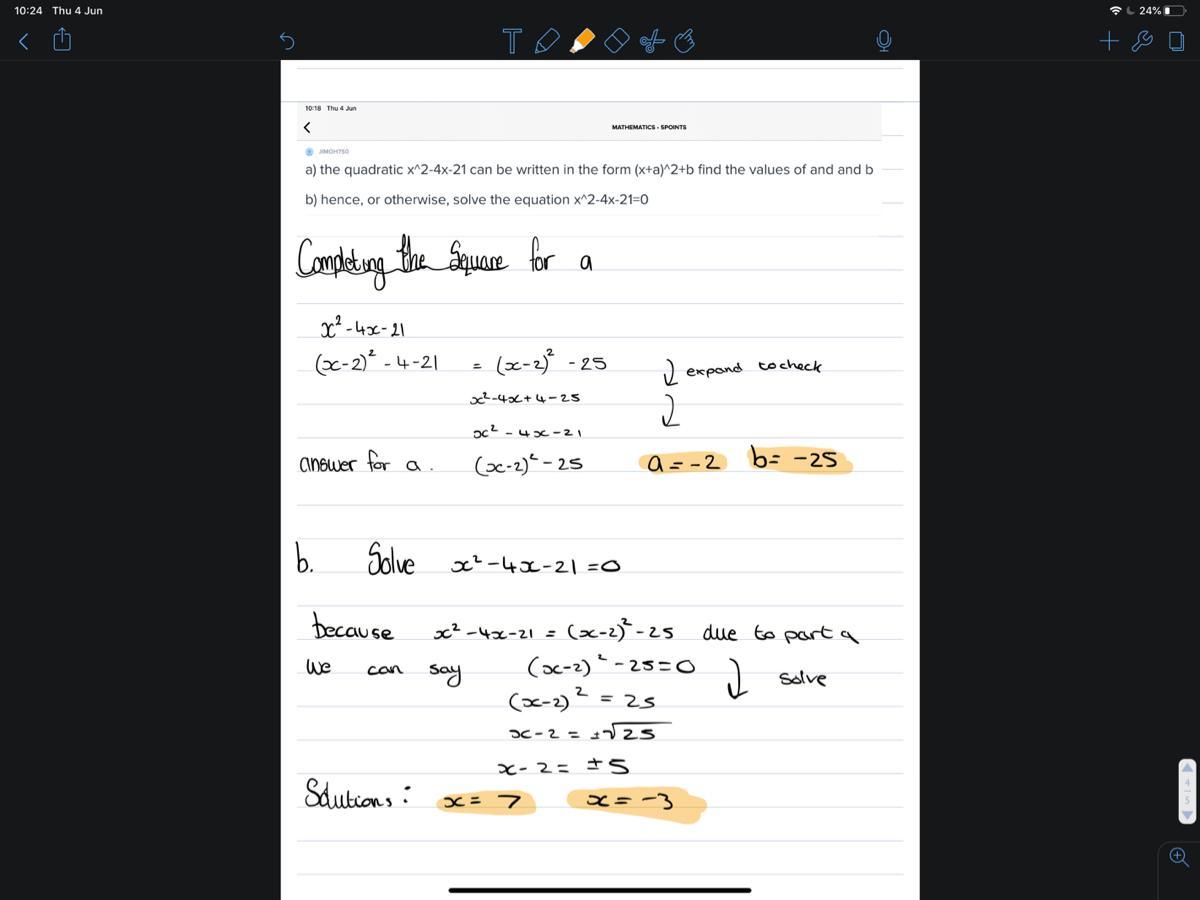 10:24 Thu 4 Jun
24%
T
10:18 Thu 4 Jun
MATHEMATICS - 5POINTS
JIMOH750
a) the quadratic x^2-4x-21 can be written in the form (x+a)^2+b find the values of and and b
b) hence, or otherwise, solve the equation x^2-4x-21=0
Completing the Square for a
x² - 4x - 21
(x-2)² - 4 - 21 = (x-2)² - 25 ↓ expand to check
x² - 4x + 4 - 25 ↓
x² - 4x - 21
answer for a. (x-2)² - 25 a = -2 b = -25
b. Solve x² - 4x - 21 = 0
because x² - 4x - 21 = (x-2)² - 25 due to part a
we can say (x-2)² - 25 = 0 ↓ solve
(x-2)² = 25
x - 2 = ±√25
x - 2 = ±5
Solutions: x = 7 x = -3
4
5